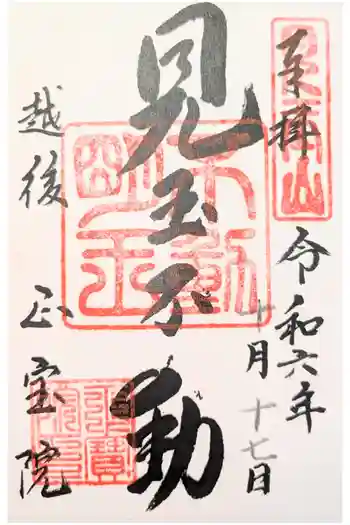 奉拝
令和六年
十月十七日
見玉不動
越後 正宝院